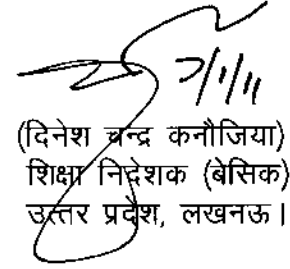 7/1/11
(दिनेश चन्द्र कनौजिया)
शिक्षा निदेशक (बेसिक)
उत्तर प्रदेश, लखनऊ।